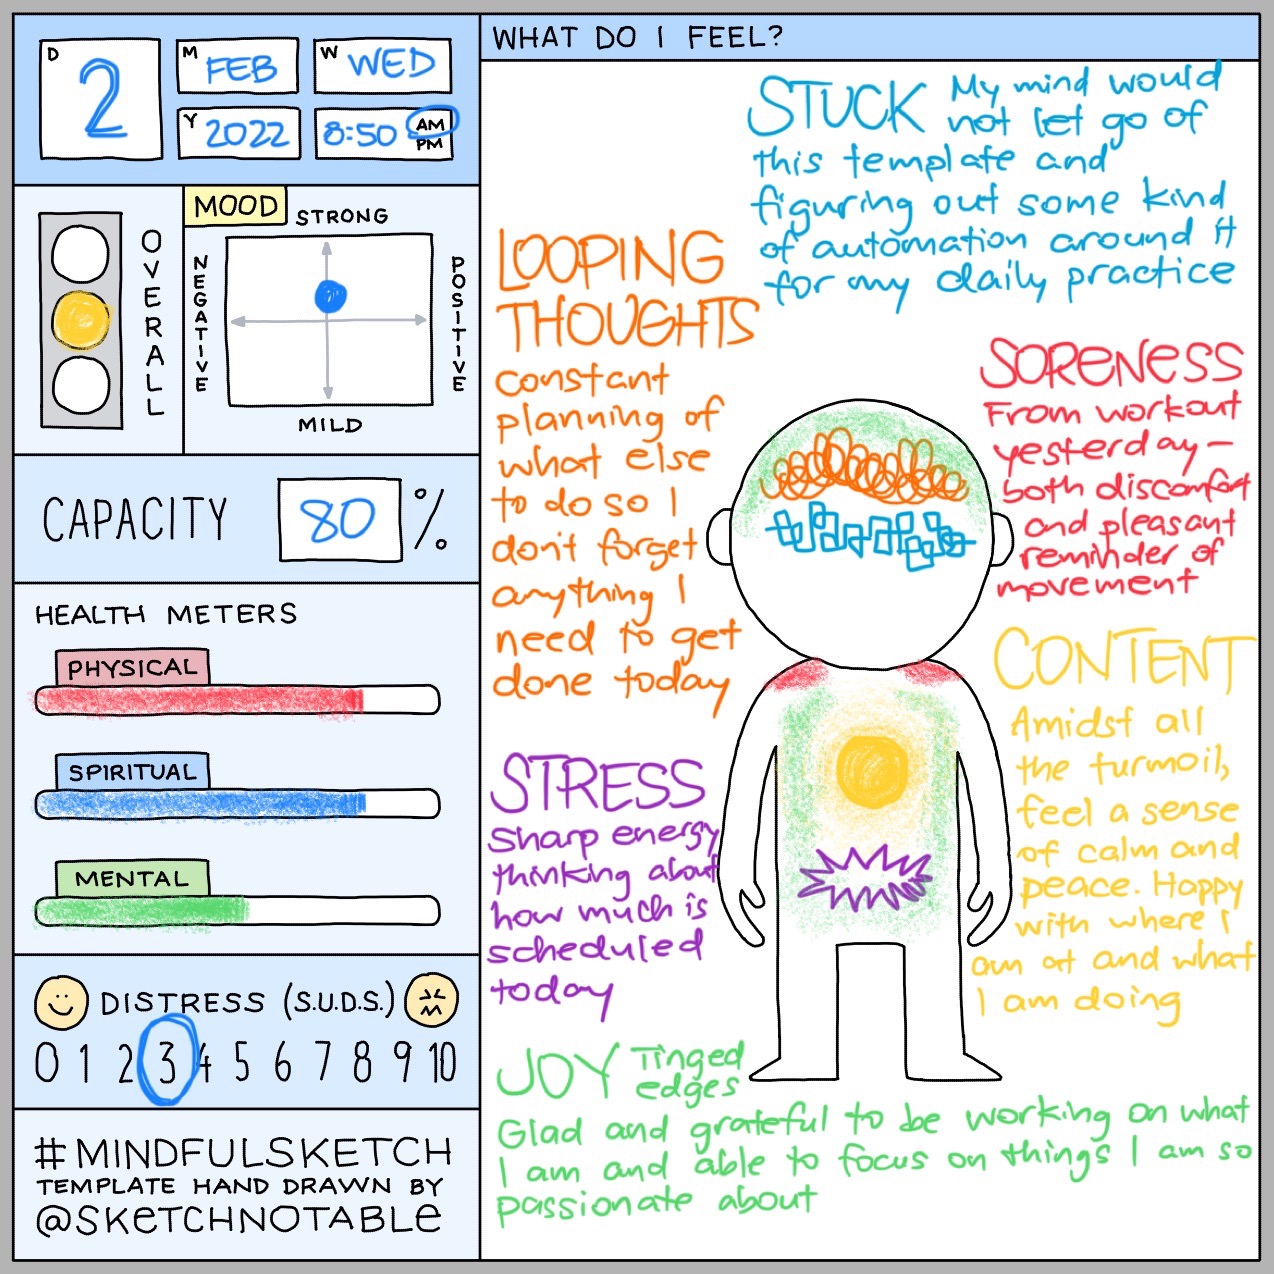 D
2
M
FEB
W
WED
Y
2022
8:50
AM
PM
OVERALL
MOOD
STRONG
NEGATIVE
POSITIVE
MILD
CAPACITY 80 %
HEALTH METERS
PHYSICAL
SPIRITUAL
MENTAL
DISTRESS (S.U.D.S.)
0 1 2 3 4 5 6 7 8 9 10
#MINDFULSKETCH
TEMPLATE HAND DRAWN BY
@SKETCHNOTABLE
WHAT DO I FEEL?
STUCK My mind would
not let go of
this template and
figuring out some kind
of automation around it
for my daily practice
LOOPING
THOUGHTS
constant
planning of
what else
to do so I
don't forget
anything I
need to get
done today
SORENESS
From workout
yesterday –
both discomfort
and pleasant
reminder of
movement
CONTENT
Amidst all
the turmoil,
feel a sense
of calm and
peace. Happy
with where I
am at and what
I am doing
STRESS
Sharp energy
thinking about
how much is
scheduled
today
JOY Tinged
edges
Glad and grateful to be working on what
I am and able to focus on things I am so
passionate about